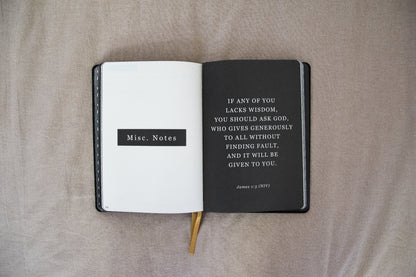 Misc. Notes
IF ANY OF YOU
LACKS WISDOM,
YOU SHOULD ASK GOD,
WHO GIVES GENEROUSLY
TO ALL WITHOUT
FINDING FAULT,
AND IT WILL BE
GIVEN TO YOU.
James 1:5 (NIV)